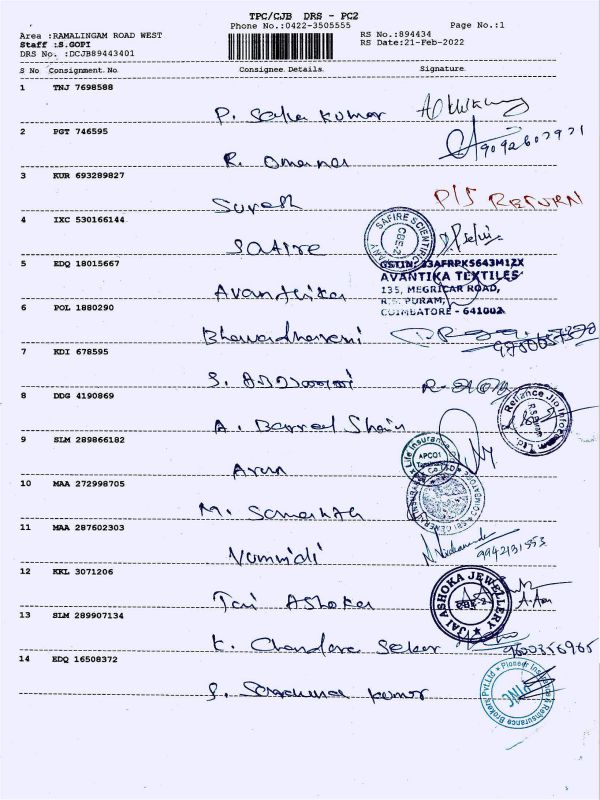 TPC/CJB DRS - PC2
Phone No.:0422-3505555 Page No.:1
Area :RAMALINGAM ROAD WEST RS No.:894434
Staff :S.GOPI RS Date:21-Feb-2022
DRS No. :DCJB89443401
S No Consignment No Consignee Details Signature
1 TNJ 7698588
P. Kumar
2 PGT 746595
9092603931
R.
3 KUR 693289827
P/S RETURN
Suresh
4 IXC 530166144
SAFIRE SCIENTIFIC COMPANY CBE-2
Safire
5 EDQ 18015667
GSTIN: 33AFRPK5643M1ZX
AVANTIKA TEXTILES
135, MEGRICAR ROAD,
R.S. PURAM,
COIMBATORE - 641002
Avanthika
6 POL 1880290
7 KDI 678595
S.
8 DDG 4190869
Reliance Jio Infocomm Ltd
A.
9 SLM 289866182
Life Insurance
APC01
Arun
10 MAA 272998705
M.
11 MAA 287602303
9942131553
Vummidi
12 KKL 3071206
JAI ASHOKA JEWELLERY CBE-2
Jai Ashoka
13 SLM 289907134
9600356965
K. Chandra Seker
14 EDQ 16508372
Pioneer Insurance & Reinsurance Brokers Pvt.Ltd
S. Kumar